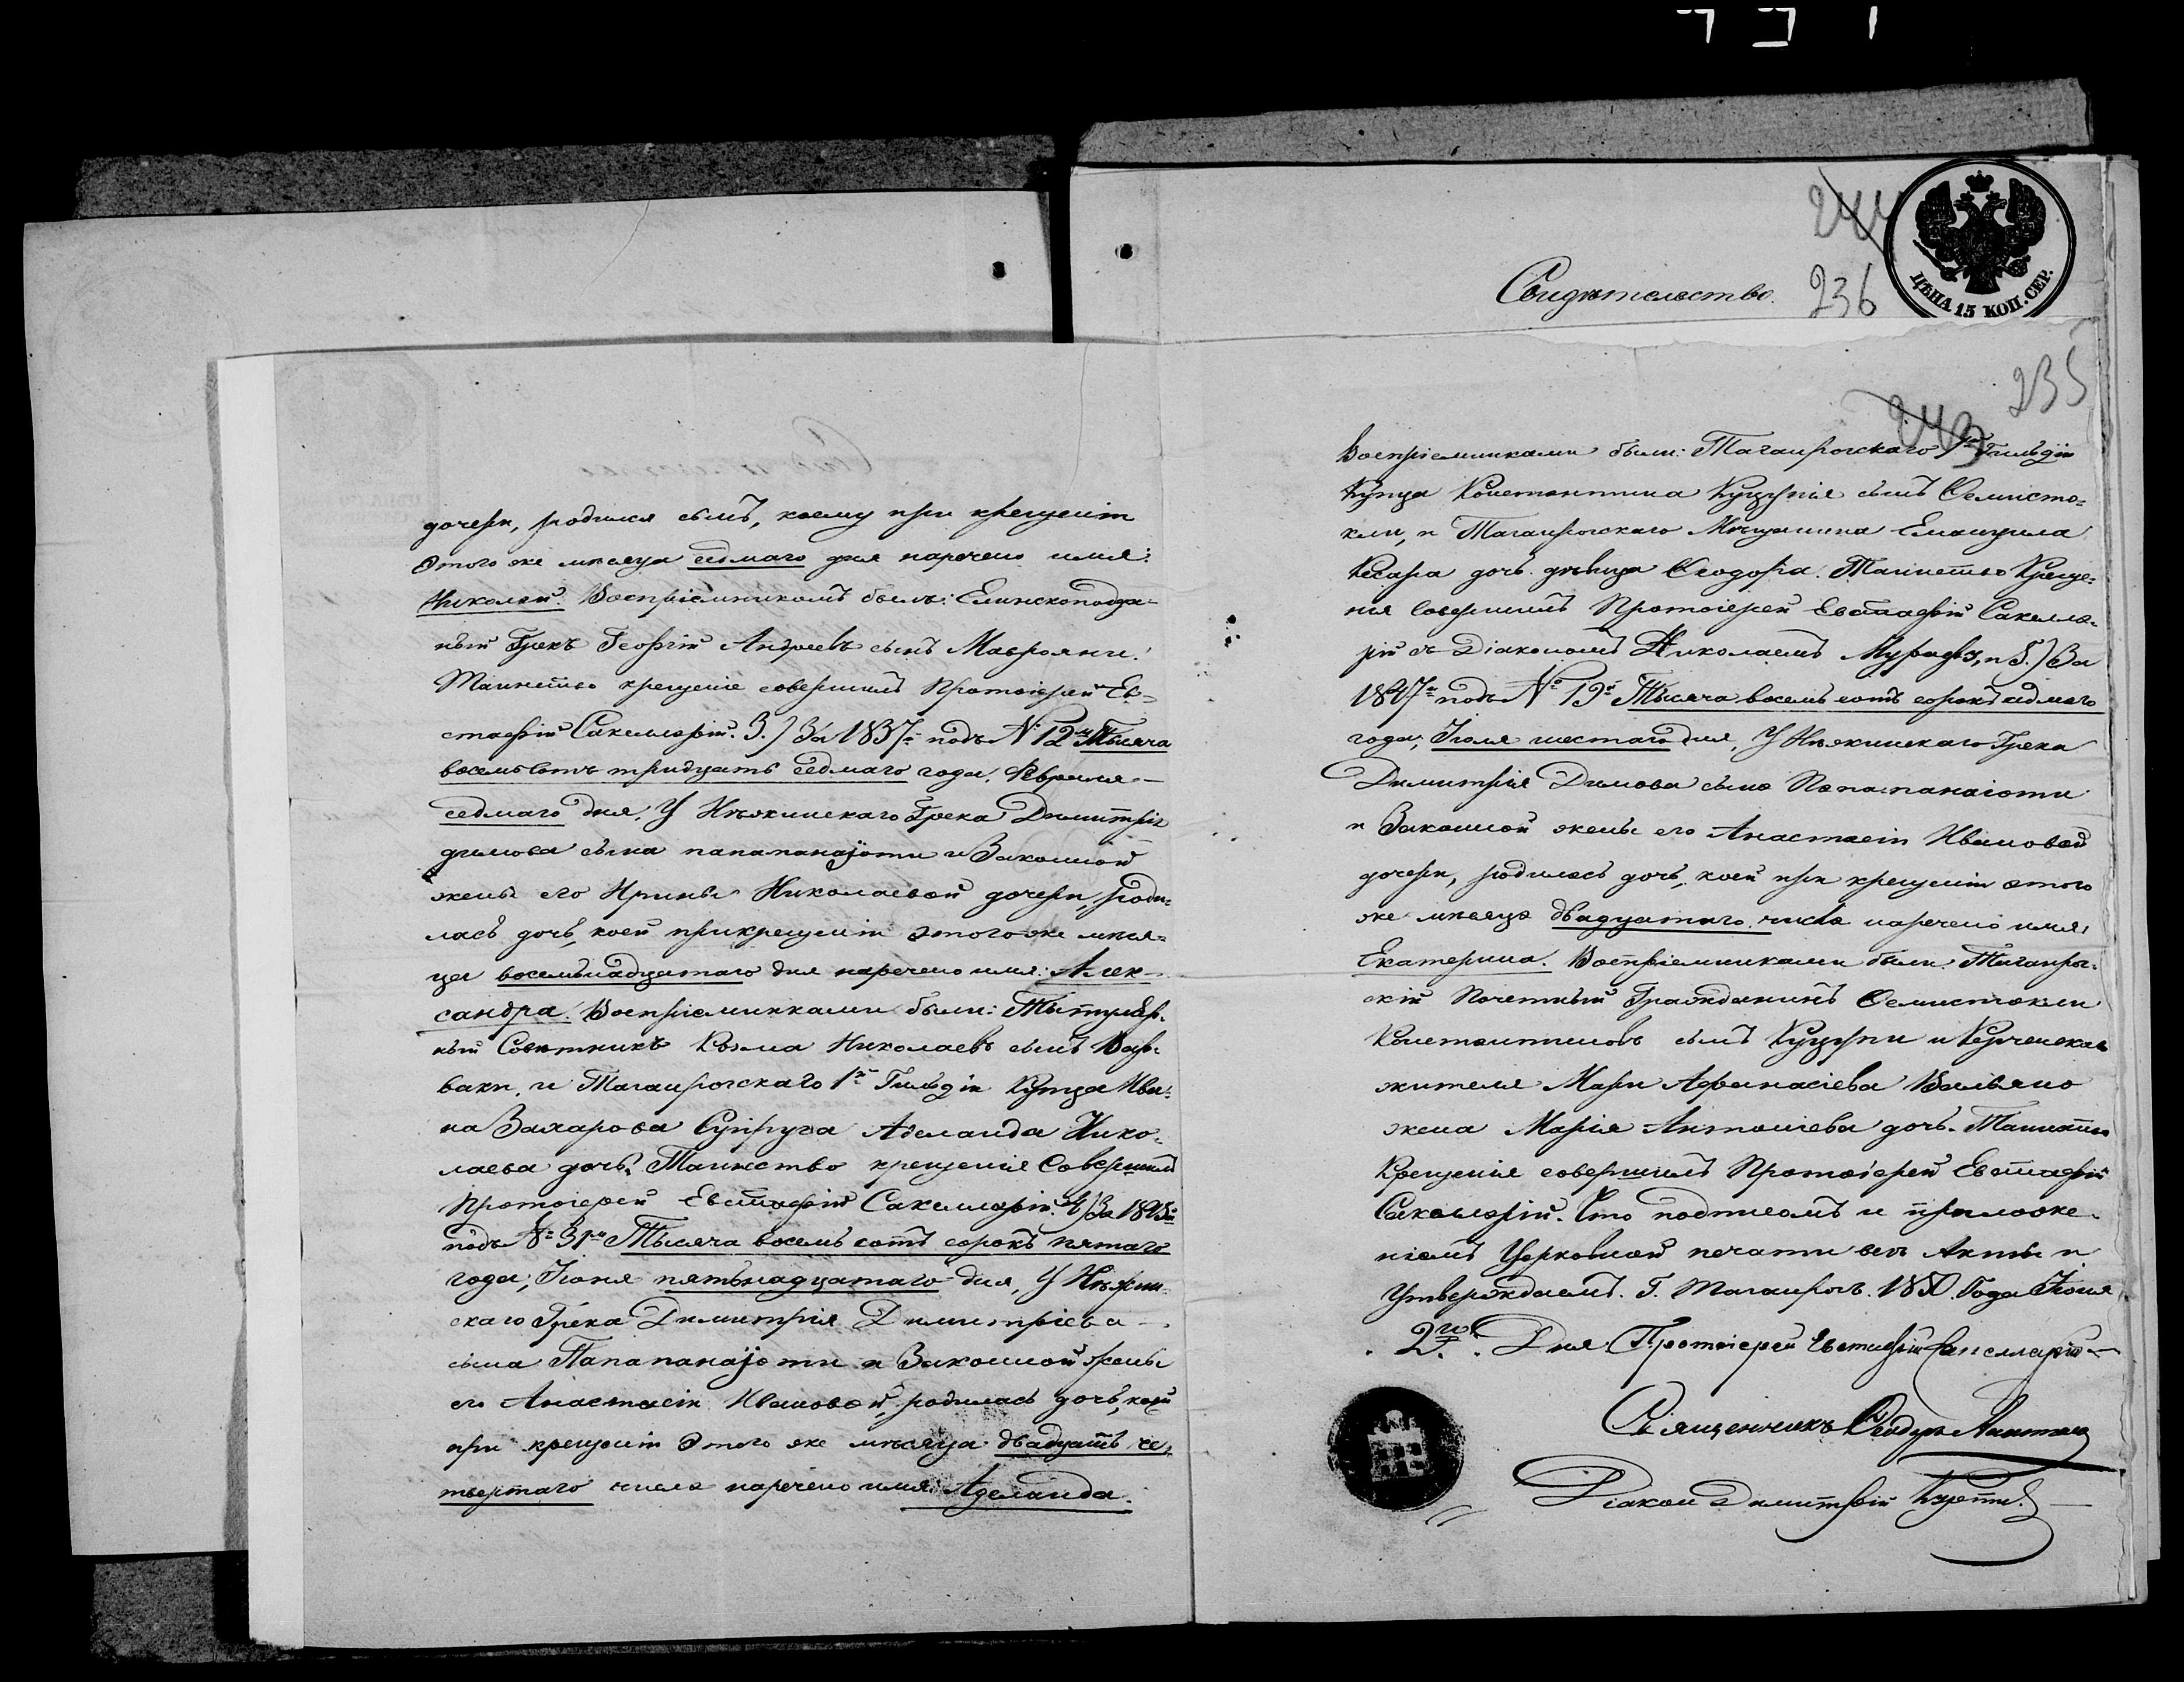 дочери, родился сынъ, коему при крещеніи
этого же мѣсяца седмаго дня наречено имя:
Николай. Воспріемникомъ былъ: Елинскоподда-
ный Грекъ Георгій Андреевъ сынъ Маврояни.
Таинство крещеніе совершилъ Протоіерей Ев-
стафій Сакелларій. 3.) За 1837й подъ № 12м Тысяча
восемьсотъ тридцать седмаго года, Февраля
седмаго дня, У Нѣжинскаго Грека Димитрія
димова сына папапанаіоти и Законной
жены его Ирины Николаевой дочери, роди-
лась дочь, коей при крещеніи этого же мѣся-
ца восемьнадцатаго дня наречено имя: Алек-
сандра. Воспріемниками были: Тытуляр-
ный Совѣтникъ Козма Николаевъ сынъ Вар-
ваки, и Таганрогскаго 1й Гильдіи Купца Ива-
на Захарова Супруга Аделаида Нико-
лаева дочь. Таинство крещенія Совершилъ
Протоіерей Евстафій Сакелларій. 4) За 1845й
подъ № 31мъ Тысяча восемь сотъ сорокъ пятаго
года, Іюня пятьнадцатаго дня, У Нѣжин-
скаго Грека Димитрія Димитріева
сына Папапанаіоти и Законной жены
его Анастасіи Ивановой, родилась дочь, коей
при крещеніи этого же мѣсяца двадцать че-
твертаго числа наречено имя: Аделаида.
Свидѣтельство.
244
236
ЦѢНА 15 КОП. СЕР.
235
243
Воспріемниками были: Таганрогскаго 1й Гильдіи
Купца Константина сынъ Ѳемисто-
кли, и Таганрогскаго Мѣщанина Емануила
дочь дѣвица Ѳеодора. Таинство Креще-
нія совершилъ Протоіерей Евстафій Сакелла-
рій съ Діакономъ Николаемъ и 5.) За
1847й подъ № 19й Тысяча восемь сотъ сорокъ седмаго
года, Іюля шестаго дня, У Нѣжинскаго Грека
Димитрія Димова сына Папапанаіоти
и Законной жены его Анастасіи Ивановой
дочери, родилась дочь, коей при крещеніи этого
же мѣсяца двадцатаго числа наречено имя:
Екатерина. Воспріемниками были: Таганрог-
скій Почетный Гражданинъ Ѳемистокли
Константиновъ сынъ и Керченскаго
жителя Мари Афанасіева Вальяно
жена Марія Антоніева дочь. Таинство
Крещенія совершилъ Протоіерей Евстафій
Сакелларій. Что подписомъ и приложе-
ніемъ Церковной печати сей Акты и
Утверждаемъ. Г. Таганрогъ. 1850. Года Іюня
2го Дня. Протоіерей Евстафій Сакелларій
Священникъ Ѳеодоръ
Діаконъ Димитрій